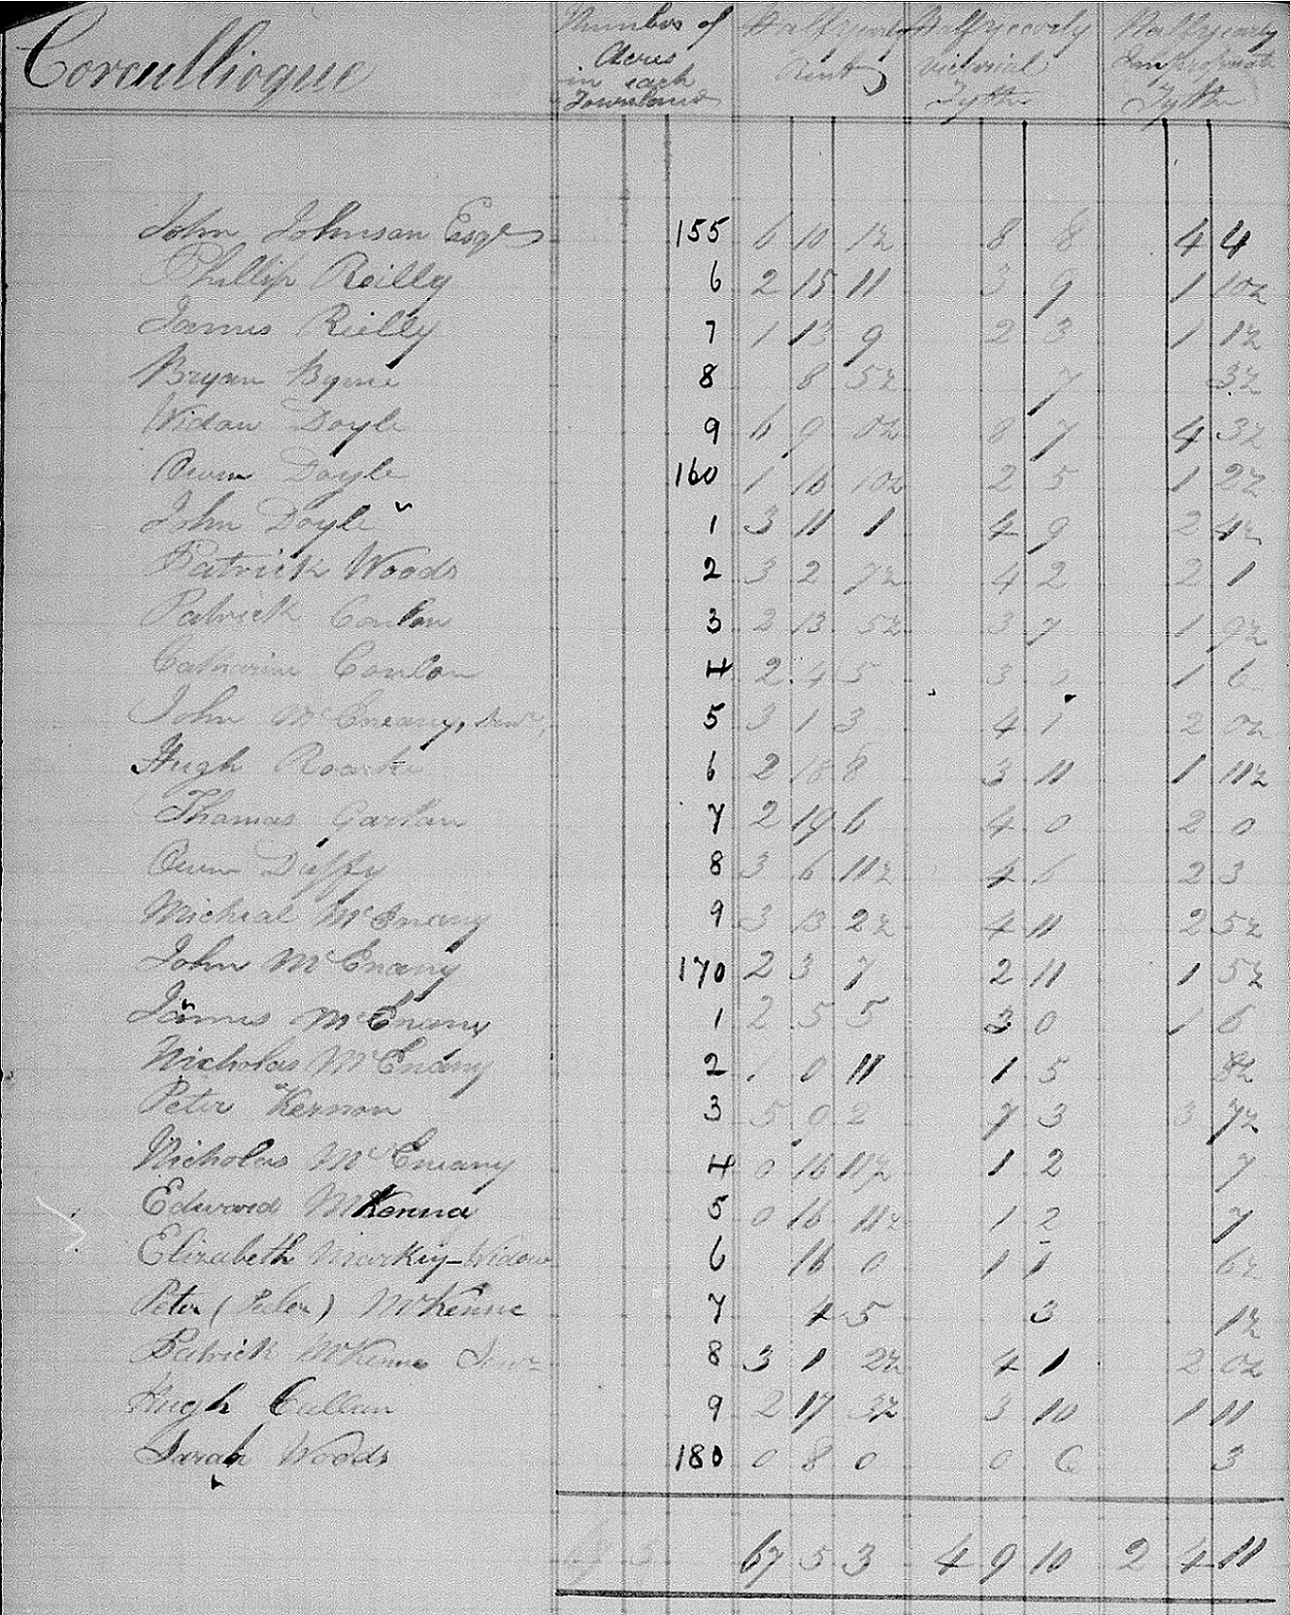 Corcullioque
Number of Acres in each Townland
Half yearly Rent
Half yearly vicarial Tythe
Half yearly Impropriate Tythe
John Johnson Esqr 155 6 10 1½ 8 8 4 4
Phillip Reilly 6 2 15 11 3 9 1 10½
James Rielly 7 1 13 9 2 3 1 1½
Bryan Byrne 8 8 5½ 7 3½
Widow Doyle 9 6 9 0½ 8 7 4 3½
Owen Doyle 160 1 16 10½ 2 5 1 2½
John Doyle 1 3 11 1 4 9 2 4½
Patrick Woods 2 3 2 7½ 4 2 2 1
Patrick Conlon 3 2 13 5½ 3 7 1 9½
Catharine Conlon 4 2 4 5 3 1 6
John McEneany, Senr 5 3 1 3 4 1 2 0½
Hugh Roarke 6 2 18 8 3 11 1 11½
Thomas Gartlan 7 2 19 6 4 0 2 0
Owen Duffy 8 3 6 11½ 4 6 2 3
Micheal McEneany 9 3 13 2½ 4 11 2 5½
John McEneany 170 2 3 7 2 11 1 5½
James McEneany 1 2 5 5 3 0 1 6
Nicholas McEneany 2 1 0 11 1 5 8½
Peter Kernon 3 5 0 2 7 3 3 7½
Nicholas McEneany 4 0 16 11½ 1 2 7
Edward McKenna 5 0 16 11½ 1 2 7
Elizabeth Markey - Widow 6 16 0 1 1 6½
Peter (Peter) McKenna 7 4 5 3 1½
Patrick McKenna Senr 8 3 1 2½ 4 1 2 0½
Hugh Callan 9 2 17 3½ 3 10 1 11
Sarah Woods 180 0 8 0 0 6 3
67 5 3 4 9 10 2 4 11